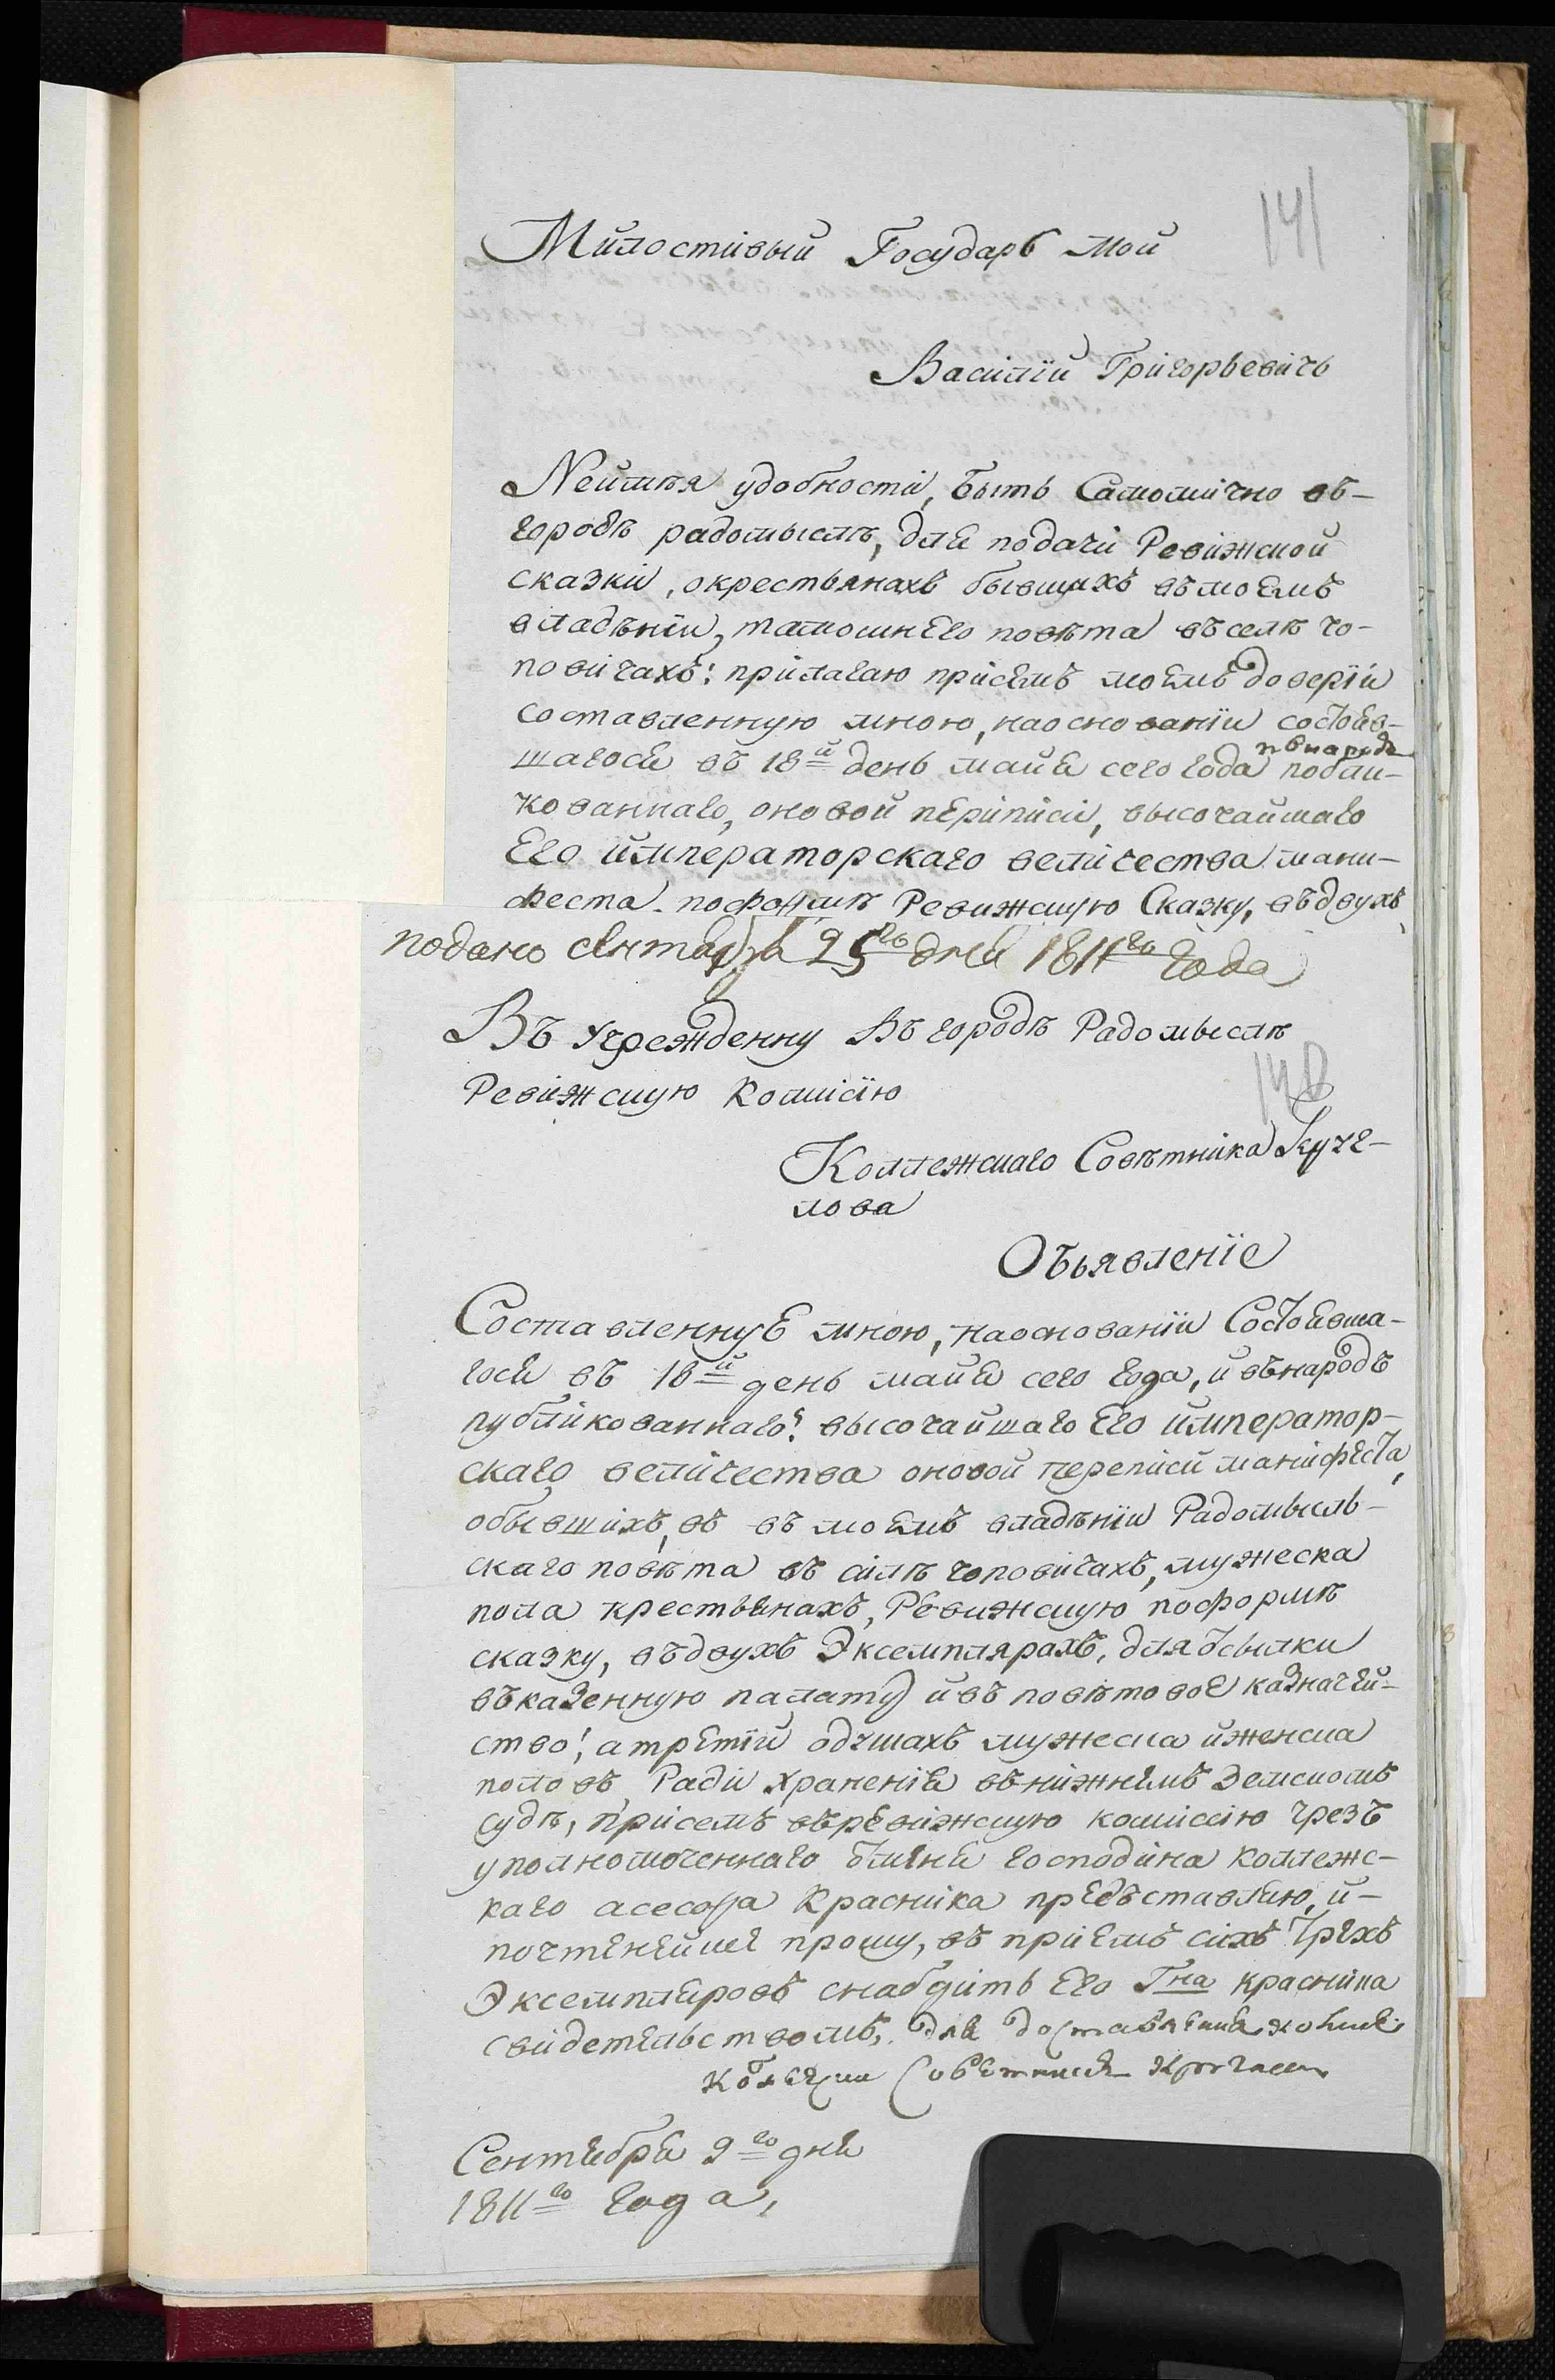 141
Милостивый Государь мой
Василїй Григорьевичь
Неимѣя удобности, быть Самолично въ-
городѣ радомыслѣ, для подачи Ревижской
сказки, окрестьянахъ бывшихъ въмоемъ
владѣнїи, тамошнего повѣта въселѣ чо-
повичахъ: прилагаю присемъ моемъ доверїи
составленную мною, наоснованїи состояв-
шагося въ 18й день майя сего года въ народъ публи-
кованнаго, оновой переписи, высочайшаго
Его императорскаго величества мани-
феста. поформѣ Ревижскую Сказку, въдвухъ
подано сентября 25го дня 1811го года
Въ Учрежденну Въ городѣ Радомыслѣ
Ревижскую Комисїю
140
Коллежскаго Совѣтника Круче-
лова
Объявленїе
Составленную мною, наоснованїи Состоявша-
гося въ 18й день майя сего года, и внародъ
публикованнаго: высочайшаго Его император-
скаго величества оновой переписи манифеста,
обывшихъ, въ въ моемъ владѣнїи Радомысль-
скаго повѣта въ силѣ чоповичахъ, мужеска
пола крестьянахъ, Ревижскую поформѣ
сказку, въдвухъ Экземплярахъ, для отсылки
въказенную палату и въ повѣтовое казначей-
ство! а третїй одушахъ мужеска иженска
половъ, Ради храненїя внижнемъ Земскомъ
судѣ, присемъ въревижскую комиссїю чрезъ
уполномоченнаго отменя господина коллежс-
каго асесора Красника предъставляю, и-
почтенейше прошу, въ приемѣ сихъ трехъ
Экземпляровъ снабдить Его Гна красника
свидетельствомъ, для доставления комне.
Колежски Советникъ
Сентября 9го дня
1811го года,